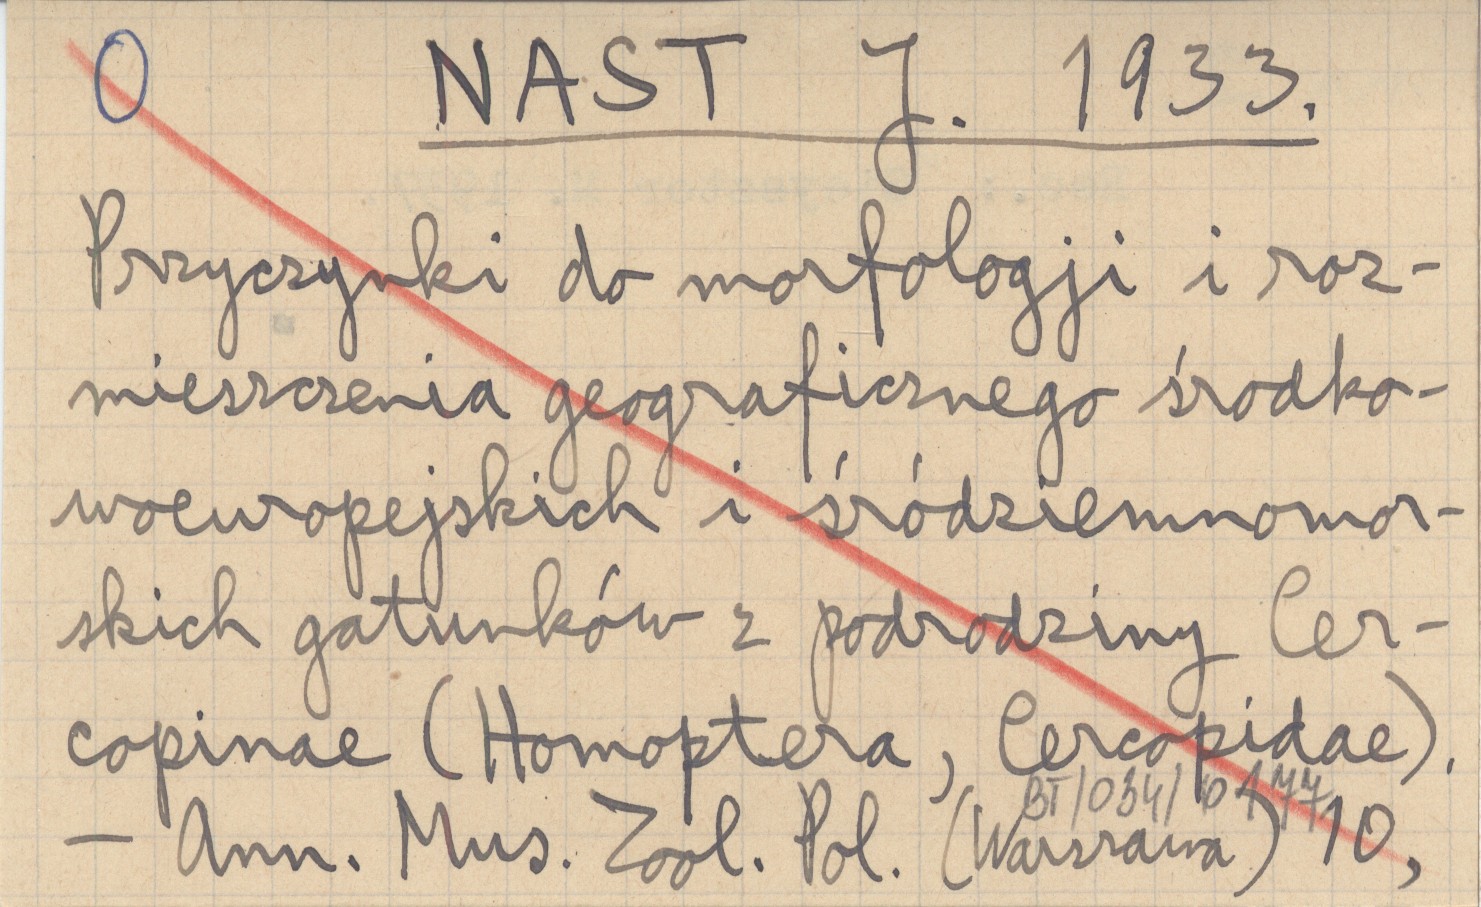 O NAST J. 1933.
Przyczynki do morfologji i roz-
mieszczenia geograficznego środko-
woeuropejskich i śródziemnomor-
skich gatunków z podrodziny Cer-
copinae (Homoptera, Cercopidae).
BT/034/
— Ann. Mus. Zool. Pol. (Warszawa) 10,